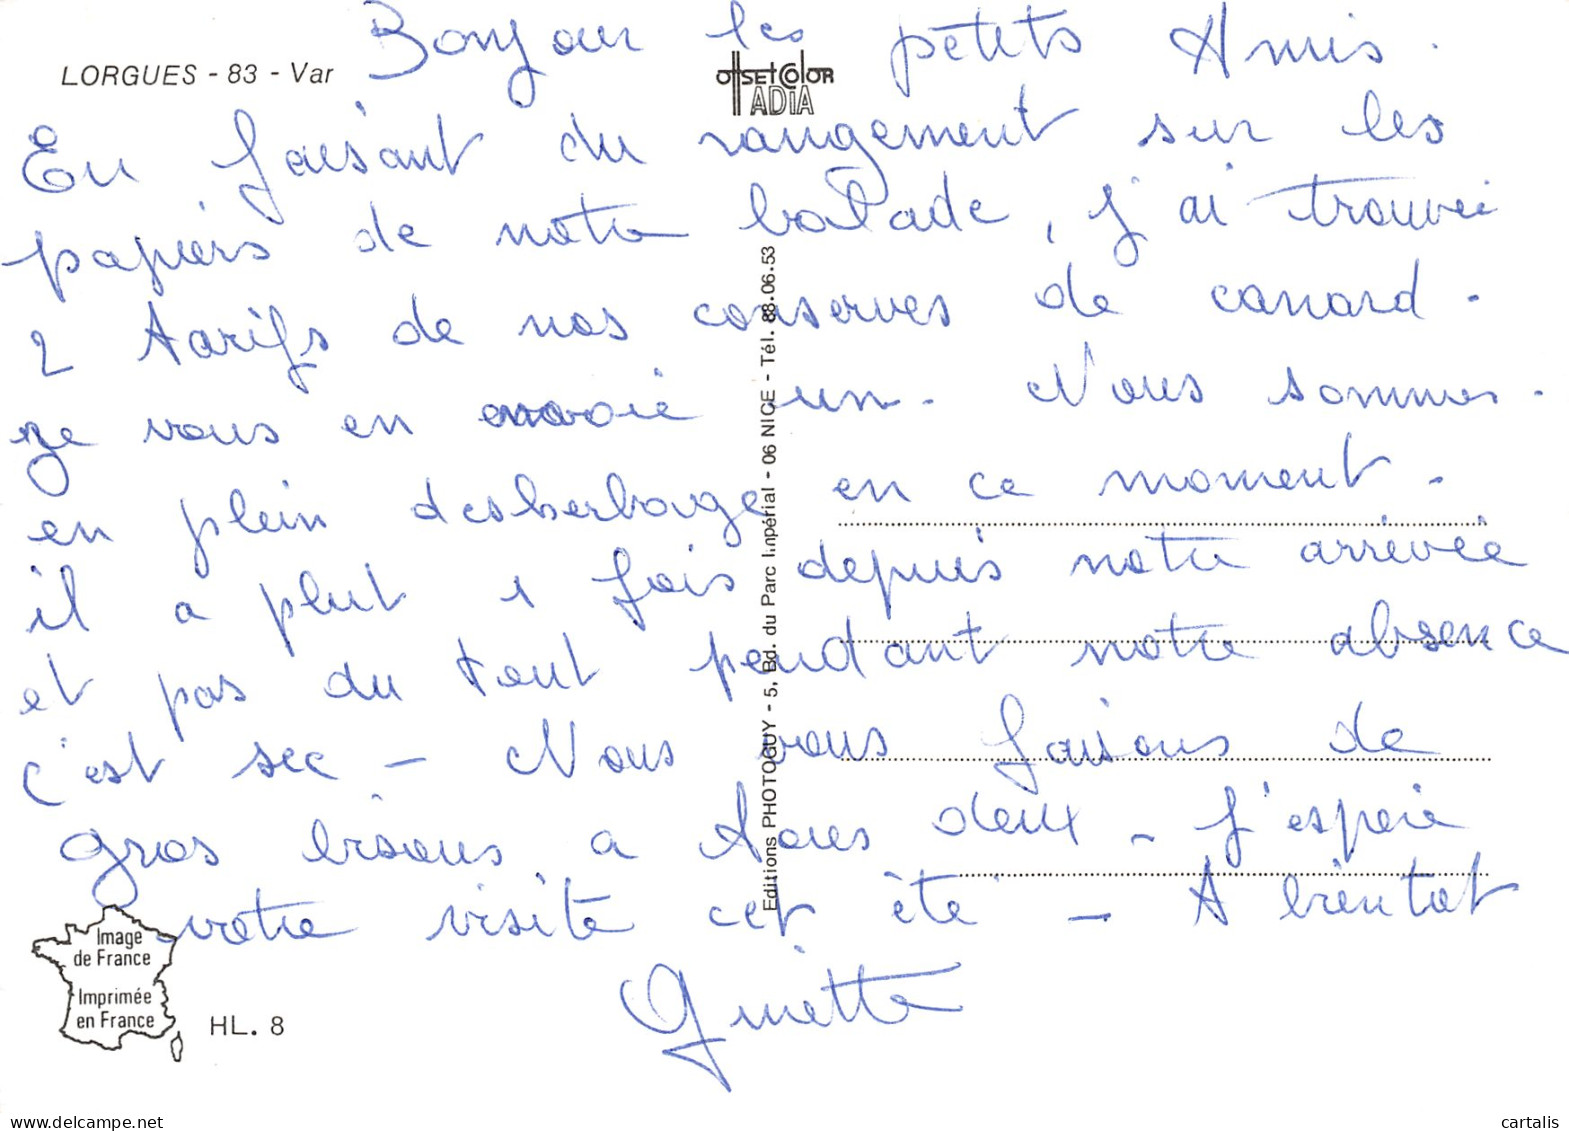 Bonjour les petits Amis.
LORGUES - 83 - Var
OffsetColor
ADIA
En faisant du rangement sur les
papiers de notre balade, j'ai trouvé
2 tarifs de nos conserves de canard.
Je vous en envoie un. Nous sommes.
en plein desherbage en ce moment.
il a plut 1 fois depuis notre arrivée
et pas du tout pendant notre absence
c'est sec - Nous vous faisons de
gros bisous a tous deux - J'espère
votre visite cet été - A bientot
Ginette
Editions PHOTOGUY - 5, Bd. du Parc Impérial - 06 NICE - Tél. 88.06.53
Image
de France
Imprimée
en France
HL. 8
cartalis